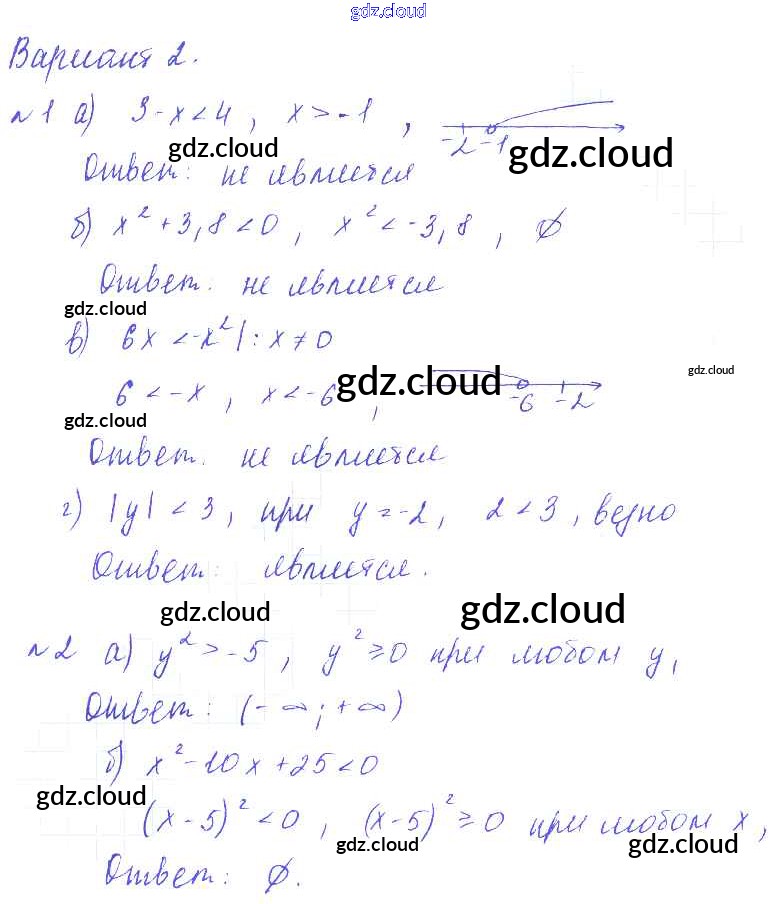 gdz.cloud
Вариант 2.
№1 а) 3-x<4, x>-1, -2 -1
gdz.cloud gdz.cloud
Ответ: не является
б) x²+3,8<0, x²<-3,8, ∅
Ответ: не является
gdz.cloud
в) 6x<-x² |: x≠0
gdz.cloud
6<-x, x<-6, gdz.cloud -6 -2
gdz.cloud
Ответ. не является
г) |y|<3, при y=-2, 2<3, верно
Ответ: является.
gdz.cloud gdz.cloud
№2 а) y²>-5, y²≥0 при любом y,
Ответ: (-∞;+∞)
б) x²-10x+25<0
gdz.cloud
(x-5)²<0, (x-5)²≥0 при любом x,
gdz.cloud gdz.cloud
Ответ: ∅.